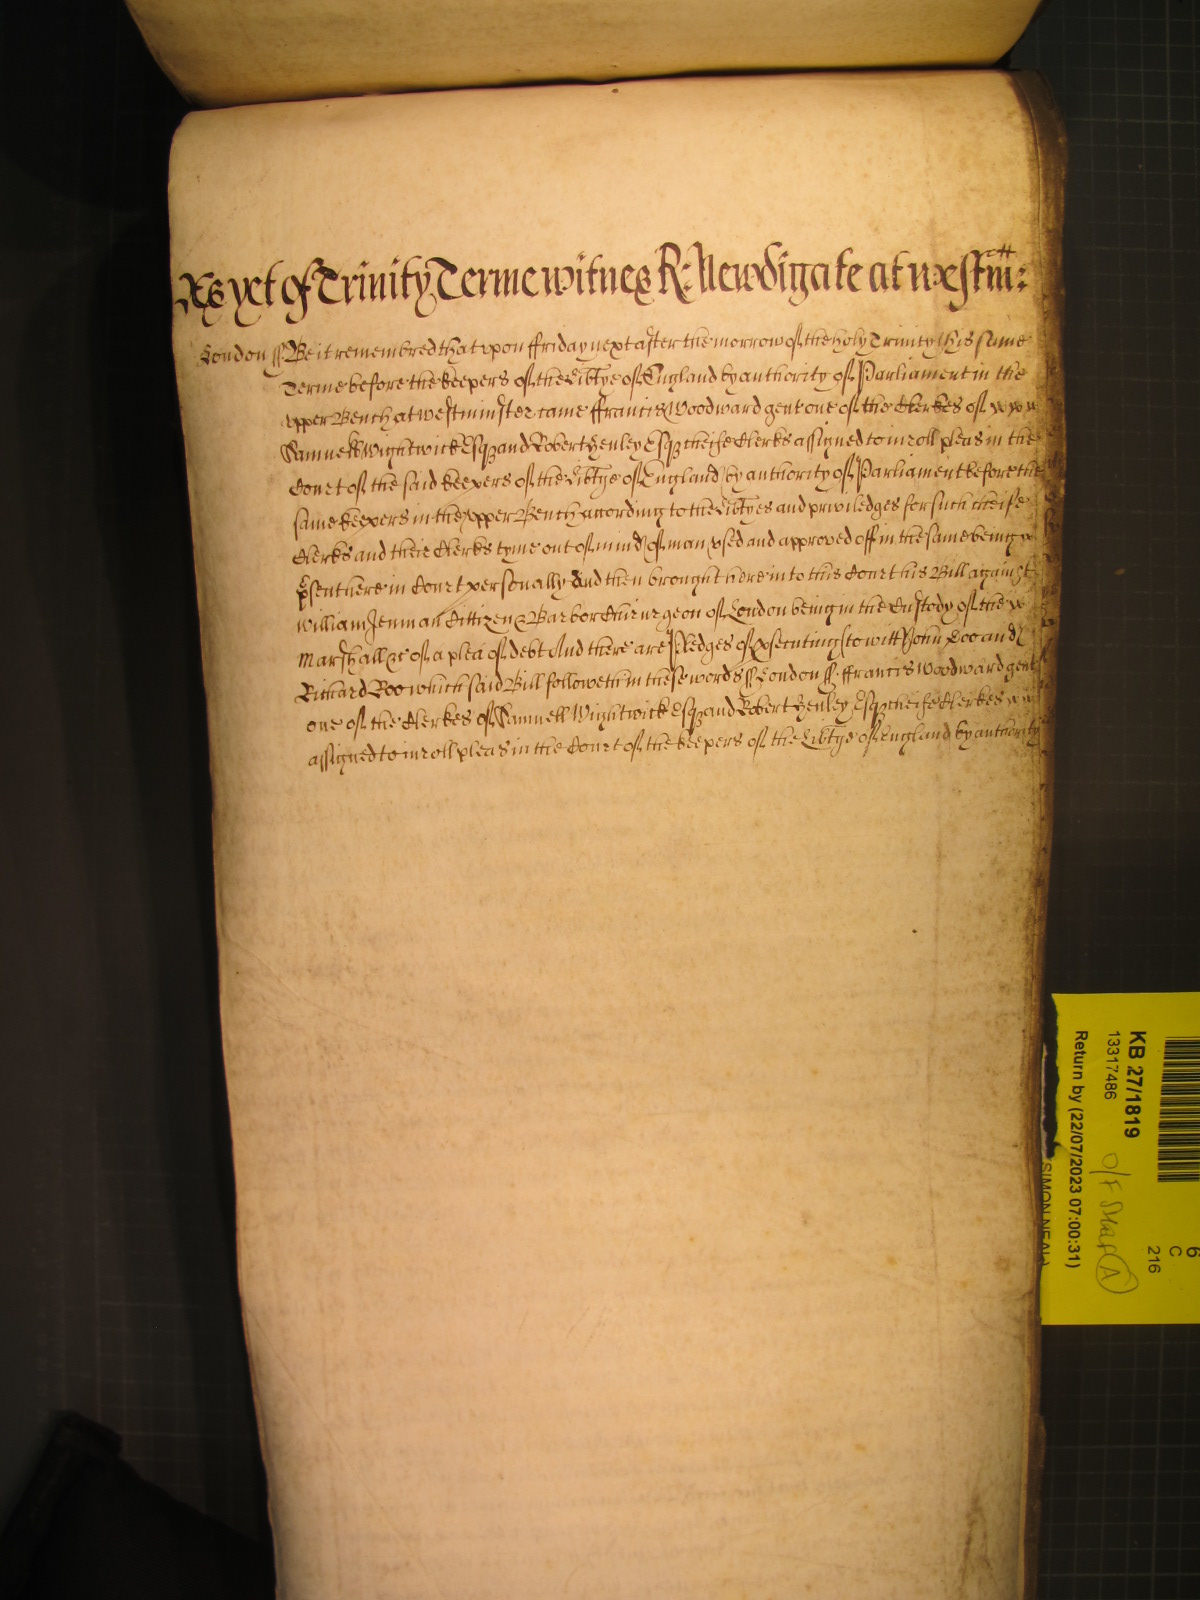 As yet of Trinity Terme witnes R: Newdigate at westm̃:
London ss. Be it remembred that upon ffriday next after the morrow of the holy Trinity this same
Terme before the keepers of the Lib̃tye of England by authority of Parliament in the
upper Bench at westminster came ffrancis Woodward gent one of the Clerkes of
Samuell Wightwick Esqz and Robert Henley Esqz cheife Clerks assigned to inroll pleas in the
Court of the said keepers of the Lib̃tye of England by authority of Parliament before the
same keepers in the upper Bench according to the Lib̃tyes and priviledges for such cheife
Clerks and their Clerks tyme out of mind of man used and approved off in the same being
p̃sent here in Court personally And then brought here into this Court his Bill against
william Jenman Cittizen & Barbor Chirurgeon of London being in the Custody of the
Marshall &c of a plea of debt And there are Pledges of p̃secuting to witt John Doo and
Richard Roo which said Bill followeth in these words ss London ss. ffrancis Woodward gent
one of the Clerkes of Samuell Wightwick Esqz and Robert Henley Esqz cheife Clerkes
assigned to inroll pleas in the Court of the keepers of the Lib̃tye of England by authority
KB 27/1819
13317486
Return by (22/07/2023 07:00:31)
O/F Staff A
6
C
216
SIMON NEAL)